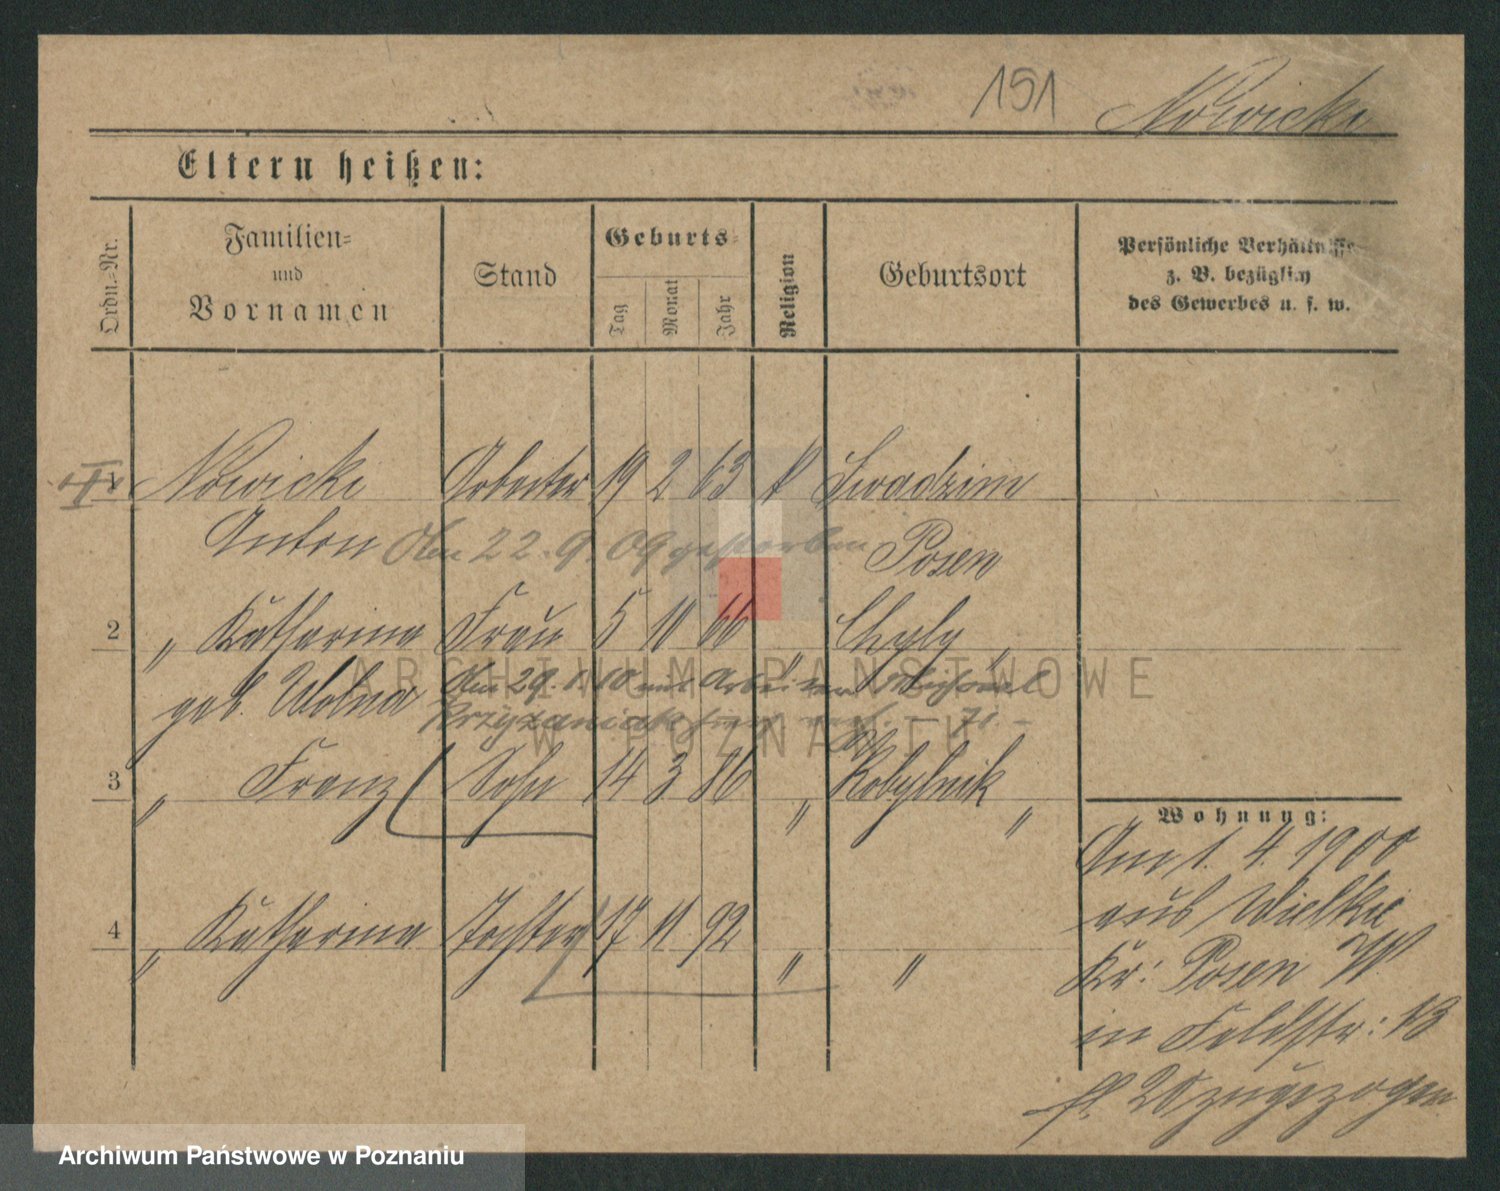 151 Nowicki
Eltern heißen:
Ordn.=Nr.
Familien=
und
Vornamen
Stand
Geburts=
Tag
Monat
Jahr
Religion
Geburtsort
Persönliche Verhältnisse
z. B. bezüglich
des Gewerbes u. s. w.
1 Nowicki Arbeiter 19 2 63 k Swadzim
Anton Am 22. 9. 09 gestorben Posen
2 " Katharina Frau 5 11 66 " Chyby "
geb. Wolna Am 29. 10 mit Arbeiter
Krzyzaniak
3 " Franz Sohn 14 3 86 " Kobylnik "
4 " Katharina Tochter 17 11 92 " "
Wohnung:
Am 1. 4. 1900
aus Wielkie
Kr: Posen W
in Feldstr: 13
zugezogen
ARCHIWUM PAŃSTWOWE
W POZNANIU
Archiwum Państwowe w Poznaniu